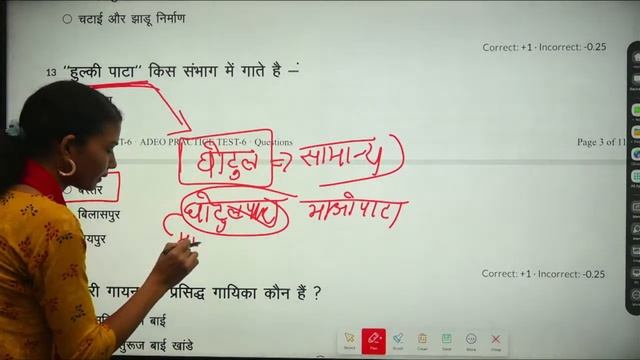 चटाई और झाडू निर्माण
Correct: +1 · Incorrect: -0.25
13 "हुल्की पाटा" किस संभाग में गाते है –
घोटुल => सामान्य
T-6 · ADEO PRACTICE TEST-6 · Questions
Page 3 of 11
बस्तर
घोटुलपाटा माओपाटा
बिलासपुर
यपुर
Correct: +1 · Incorrect: -0.25
री गायन प्रसिद्ध गायिका कौन हैं ?
बाई
सुरूज बाई खांडे
Pen
Clear
Save
More
Close